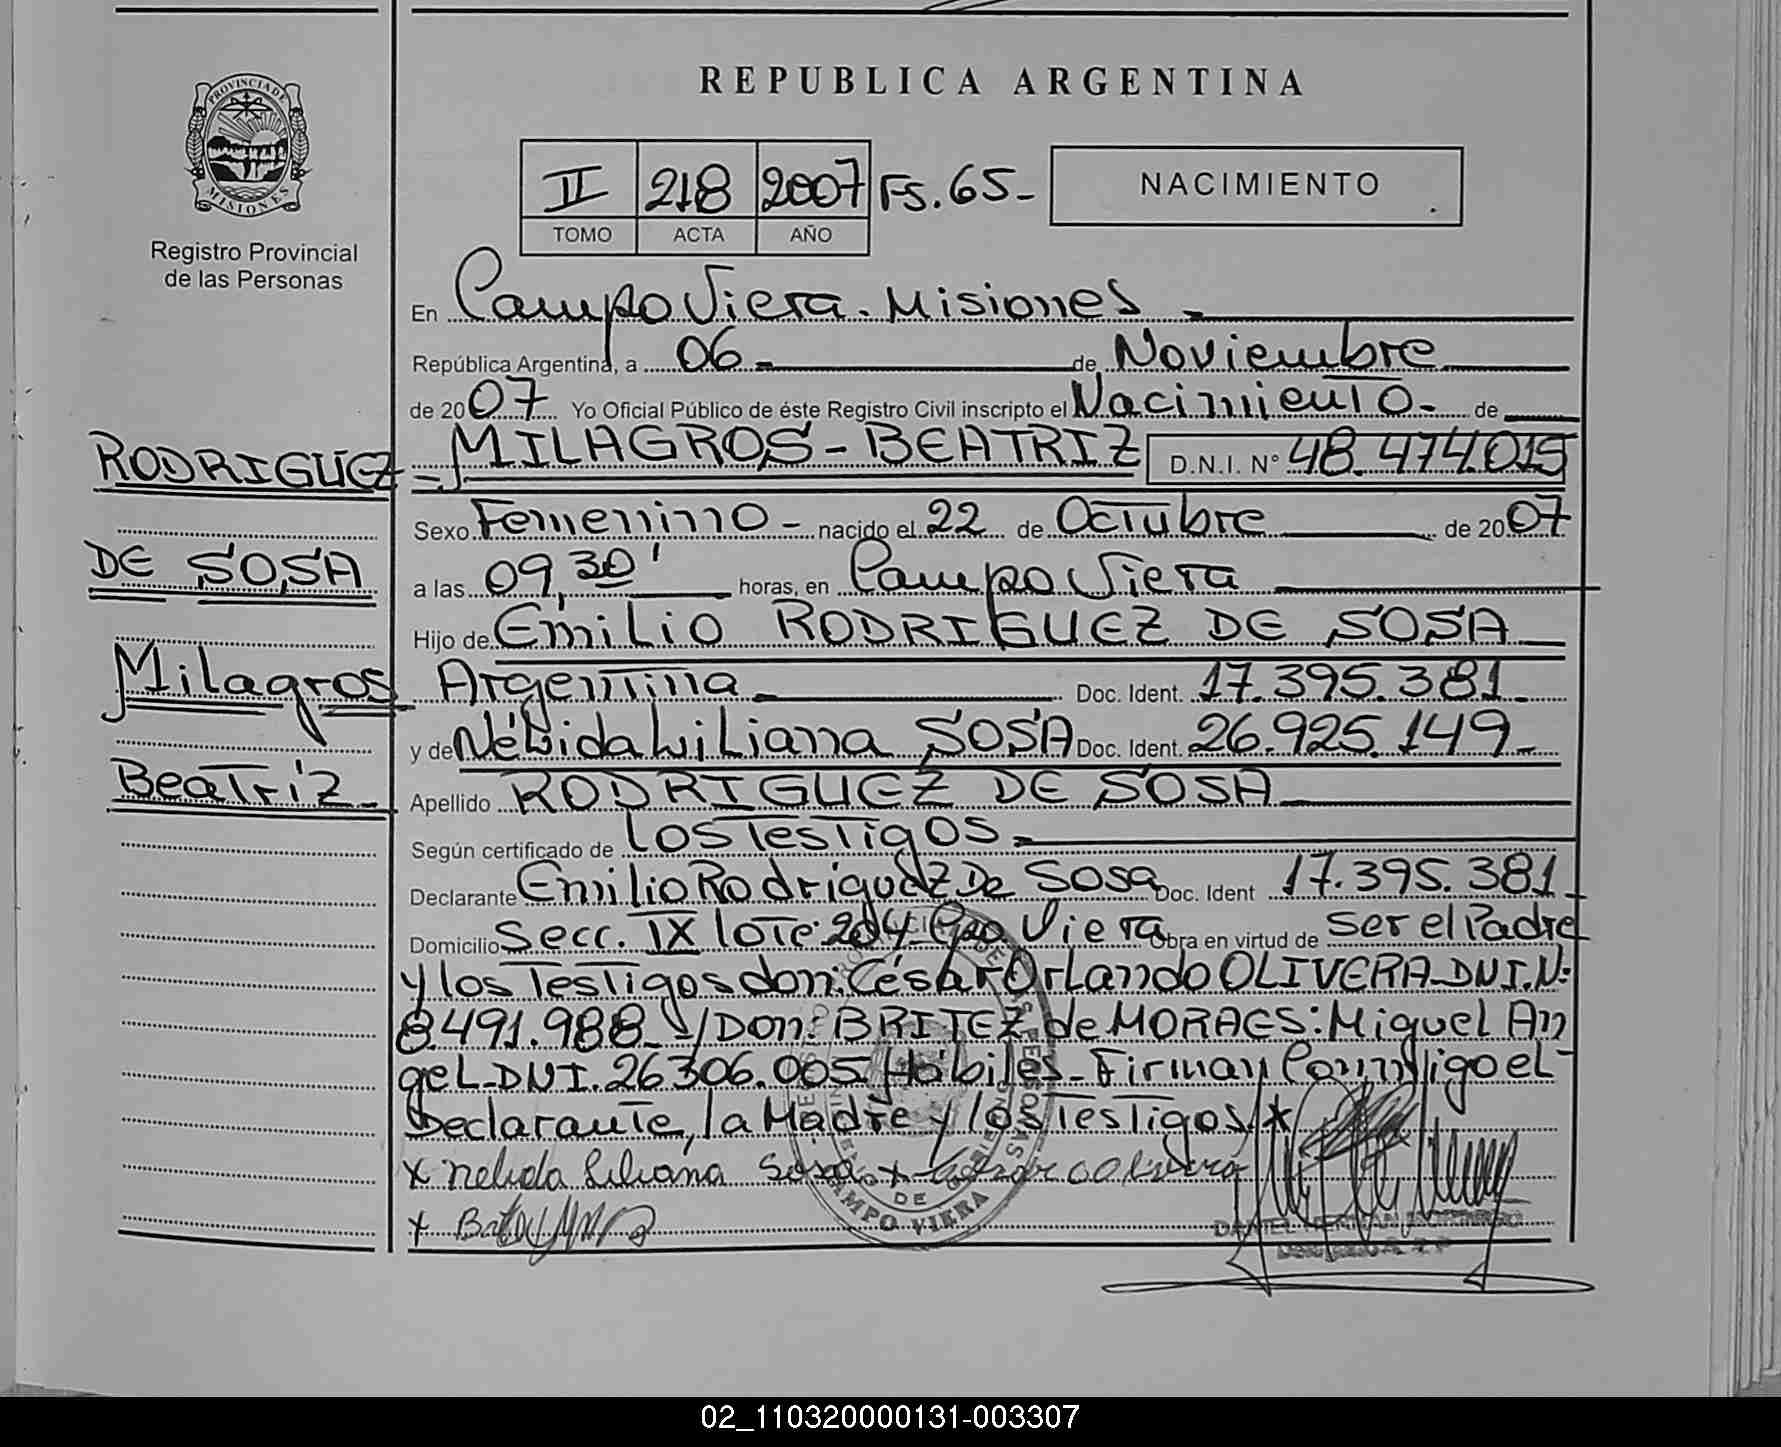 REPUBLICA ARGENTINA
PROVINCIA DE MISIONES
Registro Provincial
de las Personas
II 218 2007 FS. 65-
TOMO ACTA AÑO
NACIMIENTO
En Campo Viera. Misiones
República Argentina, a 06 de Noviembre
de 2007 Yo Oficial Público de éste Registro Civil inscripto el Nacimiento- de
MILAGROS - BEATRIZ D.N.I. N° 48.474.015
Sexo Femenino - nacido el 22 de Octubre de 2007
a las 09,30' horas, en Campo Viera
Hijo de Emilio RODRIGUEZ DE SOSA
Argentina Doc. Ident. 17.395.381
y de Nélida Liliana SOSA Doc. Ident. 26.925.149
Apellido RODRIGUEZ DE SOSA
Según certificado de Los Testigos
Declarante Emilio Rodriguez De Sosa Doc. Ident 17.395.381
Domicilio Secc. IX lote 204 Cpo. Viera Obra en virtud de ser el Padre
y los Testigos don: César Orlando OLIVERA DNI.N:
8.491.988 y/Don: BRITEZ de MORAES: Miguel An
gel-DNI.26306.005 Hábiles- Firman Conmigo el
Declarante, la Madre y los Testigos x
x Nelida Liliana Sosa x Cesar O Olivera
x
RODRIGUEZ
DE SOSA
Milagros
Beatriz
CAMPO VIERA
02_110320000131-003307